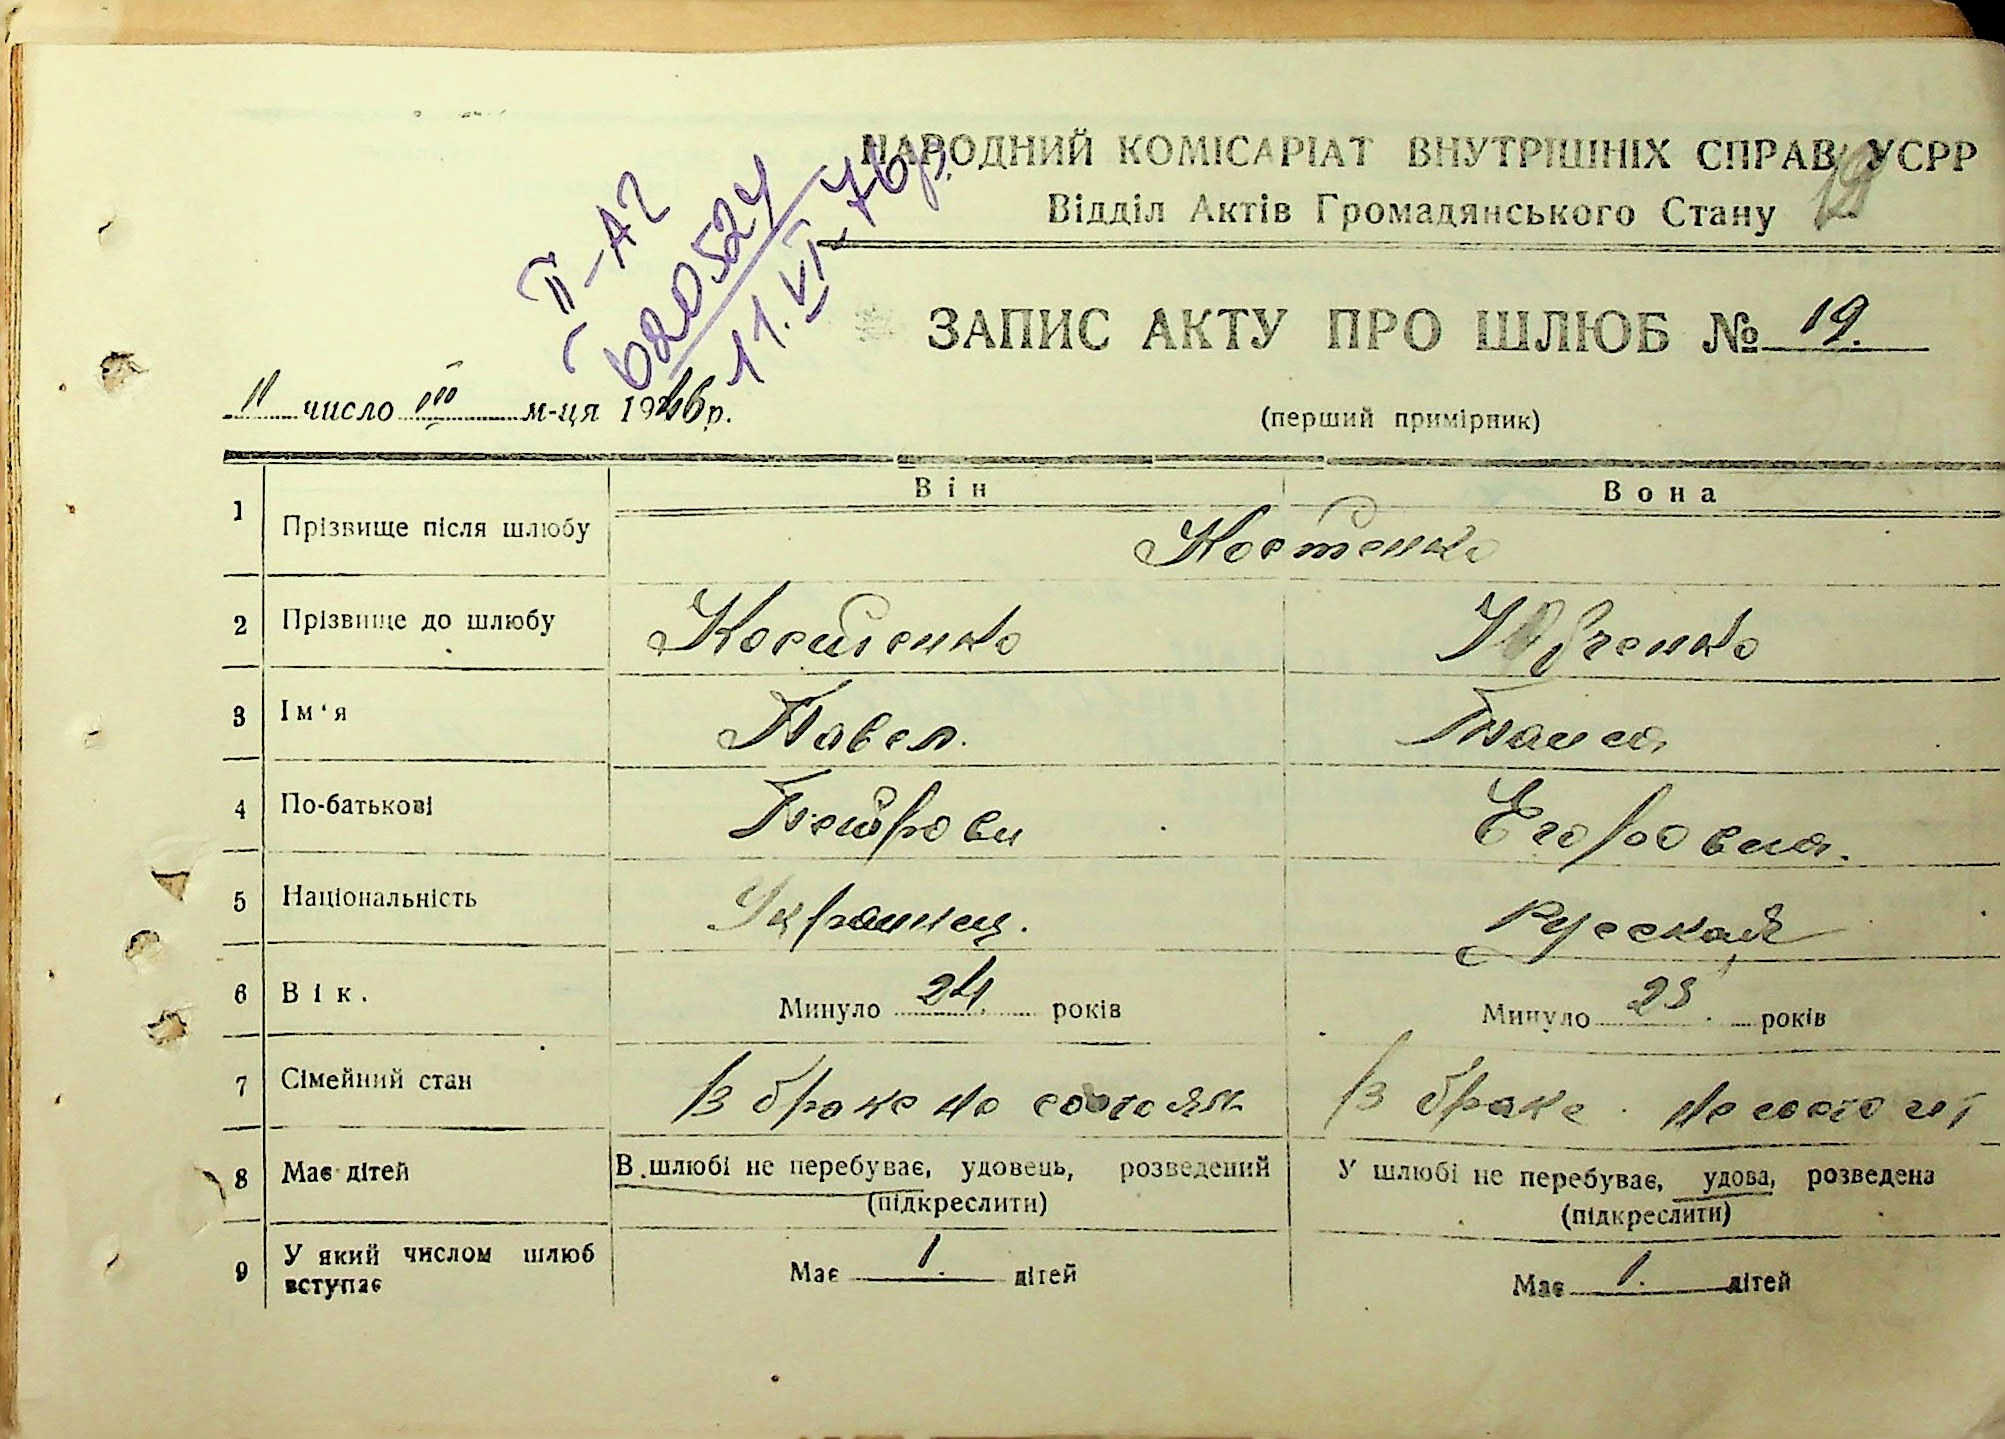 НАРОДНИЙ КОМІСАРІАТ ВНУТРІШНІХ СПРАВ УСРР
Відділ Актів Громадянського Стану
19
II-АГ
620524
11.VI-76р.
ЗАПИС АКТУ ПРО ШЛЮБ № 19.
11 число III м-ця 1946 р.
(перший примірник)
Він Вона
1 Прізвище після шлюбу Костенко
2 Прізвище до шлюбу Костенко
3 Ім'я Павел. Таиса
4 По-батькові Петрови Егоровна.
5 Національність Украинец. Русская
6 Вік. Минуло 24 років Минуло 23 років
7 Сімейний стан В браке не состоял В браке не состоит
8 Має дітей В шлюбі не перебуває, удовець, розведений У шлюбі не перебуває, удова, розведена
(підкреслити) (підкреслити)
9 У який числом шлюб вступає Має 1. дітей Має 1. дітей